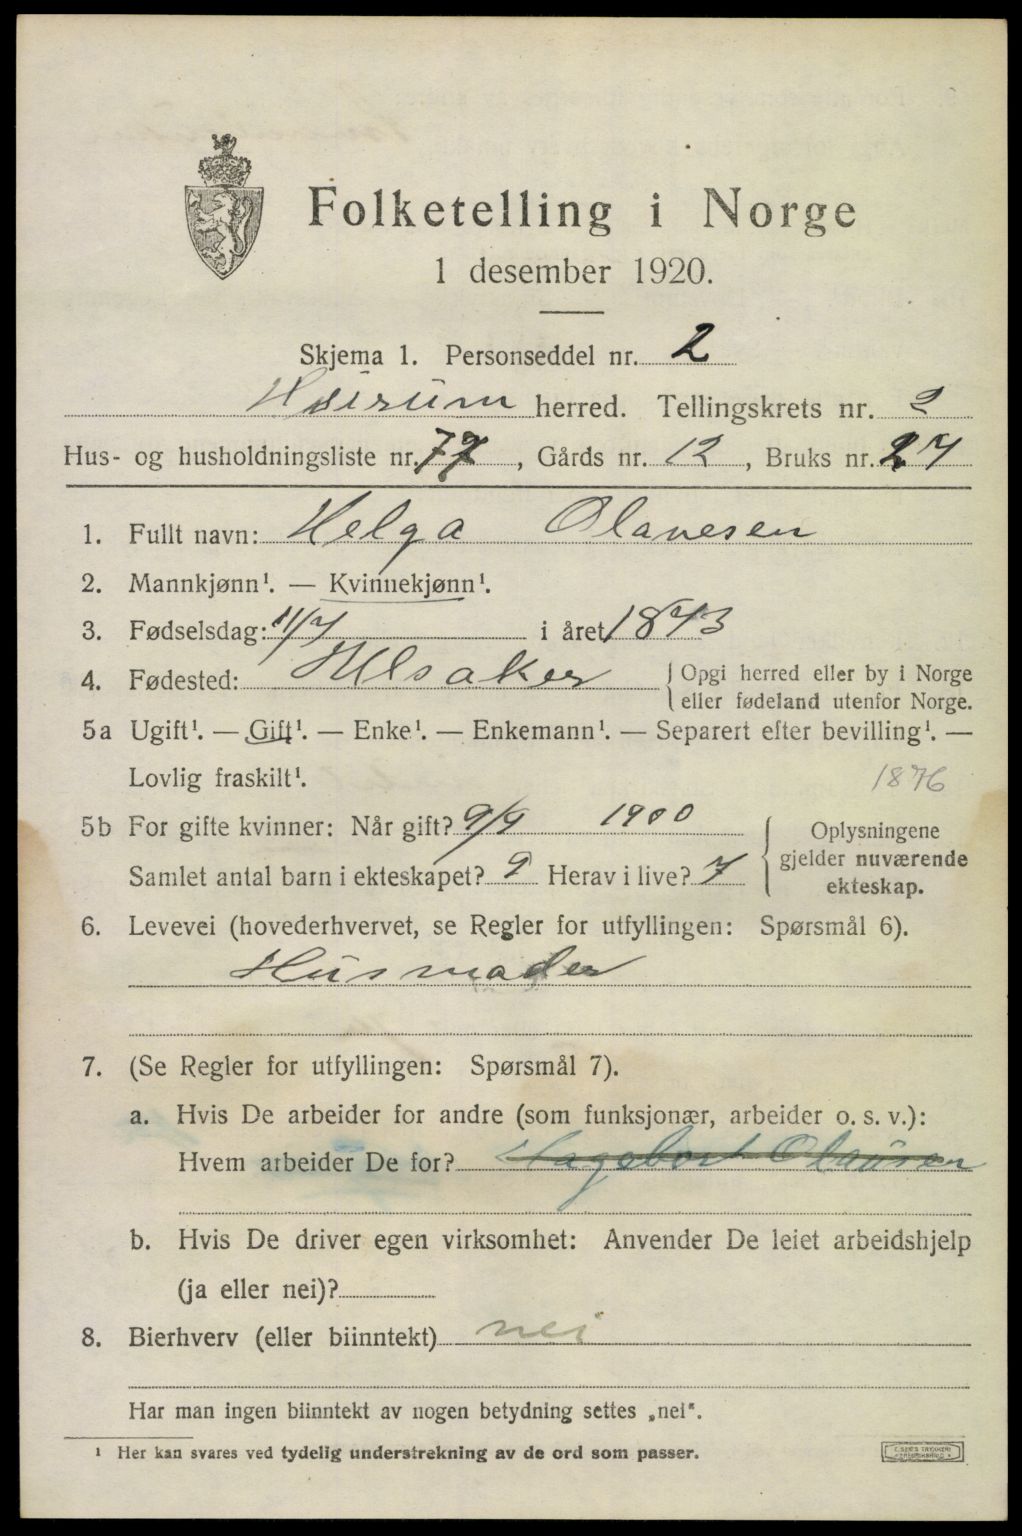 Folketelling i Norge
1 desember 1920.
Skjema 1. Personseddel nr. 2
Høirum herred. Tellingskrets nr. 2
Hus- og husholdningsliste nr. 77, Gårds nr. 12, Bruks nr. 27
1. Fullt navn: Helga Olavesen
2. Mannkjønn¹. — Kvinnekjønn¹.
3. Fødselsdag: 11/7 i året 1873
4. Fødested: Ulsaker { Opgi herred eller by i Norge
eller fødeland utenfor Norge.
5a Ugift¹. — Gift¹. — Enke¹. — Enkemann¹. — Separert efter bevilling¹. —
Lovlig fraskilt¹. 1876
5b For gifte kvinner: Når gift? 9/9 1900
Samlet antal barn i ekteskapet? 9 Herav i live? 7
{ Oplysningene
gjelder nuværende
ekteskap.
6. Levevei (hovederhvervet, se Regler for utfyllingen: Spørsmål 6).
Husmoder
7. (Se Regler for utfyllingen: Spørsmål 7).
a. Hvis De arbeider for andre (som funksjonær, arbeider o. s. v.):
Hvem arbeider De for? Hagebort Olausen
b. Hvis De driver egen virksomhet: Anvender De leiet arbeidshjelp
(ja eller nei)?
8. Bierhverv (eller biinntekt) nei
Har man ingen biinntekt av nogen betydning settes „nei“.
¹ Her kan svares ved tydelig understrekning av de ord som passer.